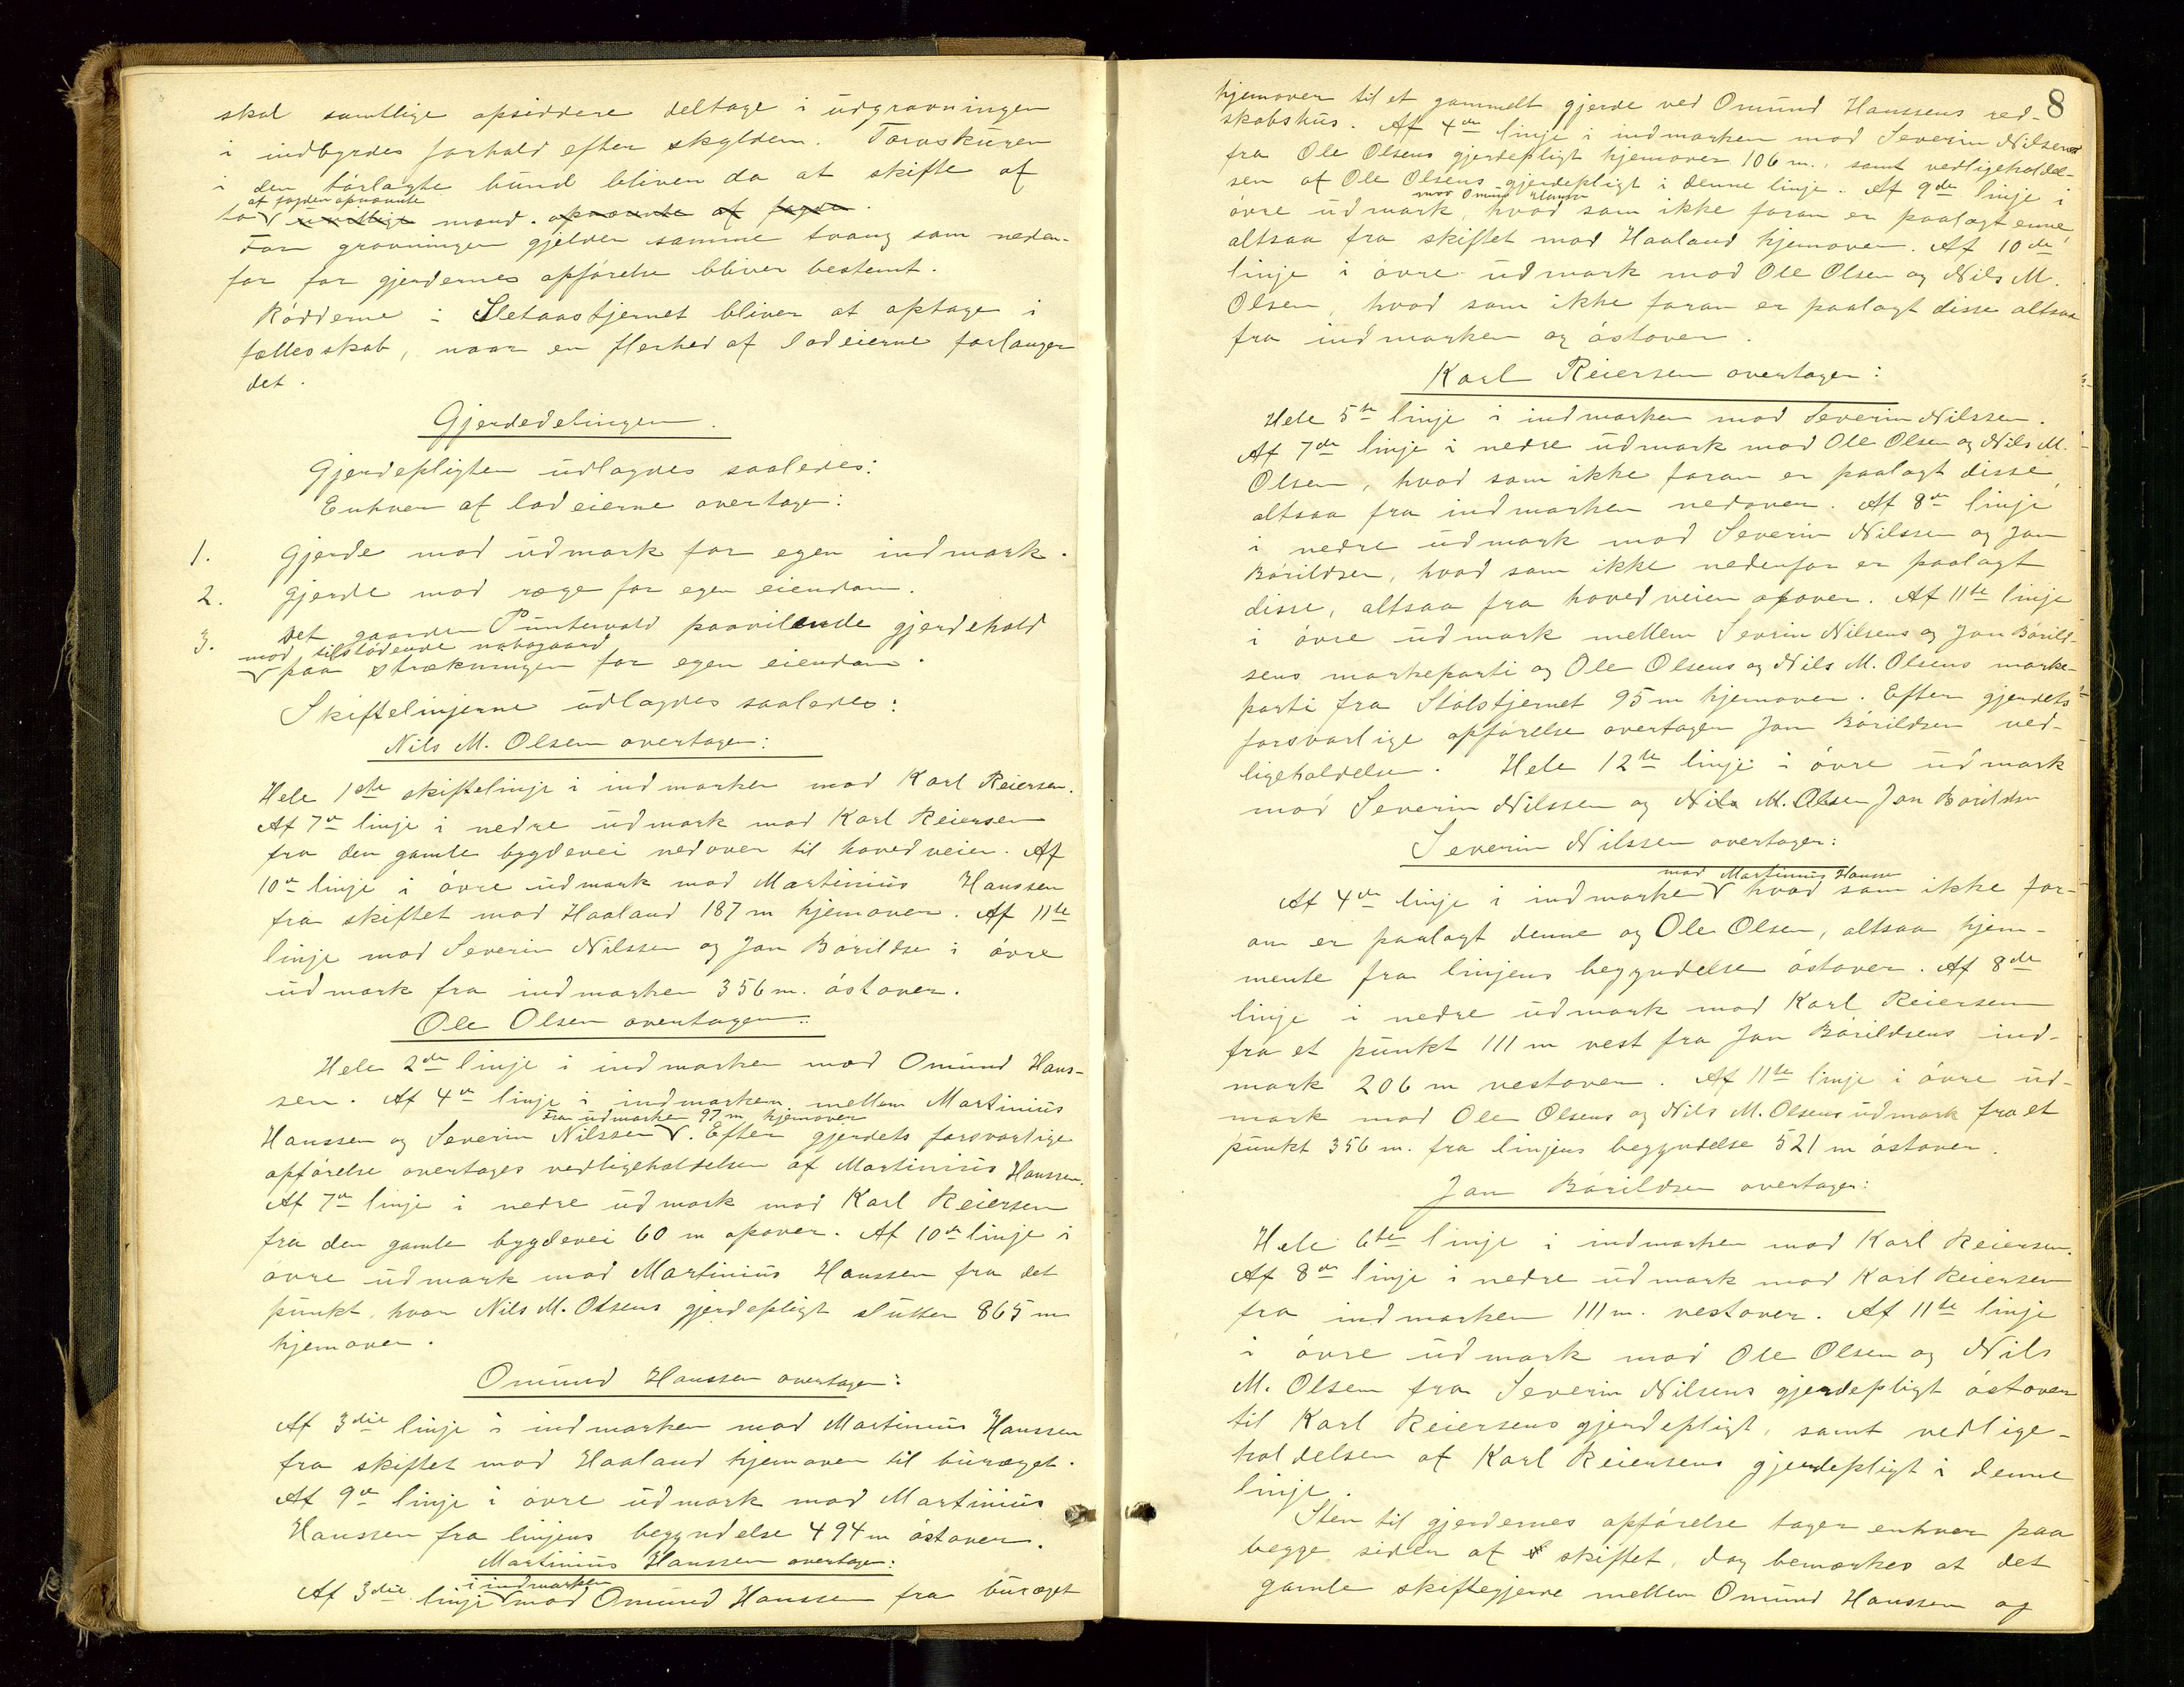 skal samtlige opsiddere deltage i udgravningen
i indbyrdes forhold efter skylden. Torvskuren
i den tørlagte bund bliver da at skifte af
af fogden opnævnte
to uvillige mænd. opnævnte af fogden.
For gravningen gjelder samme tvang som neden-
for for gjerdernes opførelse bliver bestemt.
Rødderne i Sletaastjernet bliver at optage i
fællesskab, naar en flerhed af lodeierne forlanger
det.
Gjerdedelingen.
Gjerdepligten udlagdes saaledes:
Enhver af lodeierne overtager:
1. Gjerde mod udmark for egen indmark.
2. Gjerde mod ræge for egen eiendom.
3. Det gaarden Puntervold paavilende gjerdehold
mod tilstødende nabogaard
paa strækningen for egen eiendom.
Skiftelinjerne udlagdes saaledes:
Nils M. Olsen overtager:
Hele 1ste skiftelinje i indmarken mod Karl Reiersen.
Af 7de linje i nedre udmark mod Karl Reiersen
fra den gamle bygdevei nedover til hovedveien. Af
10de linje i øvre udmark mod Martinius Hanssen
fra skiftet mod Haaland 187 m hjemover. Af 11te
linje mod Severin Nilssen og Jan Bårildse i øvre
udmark fra indmarken 356 m. østover.
Ole Olsen overtager:
Hele 2den linje i indmarken mod Omund Hans-
sen. Af 4de linje i indmarken mellem Martinius
Fra udmarken 97 m hjemover
Hanssen og Severin Nilssen. Efter gjerdets forsvarlige
opførelse overtages vedligeholdelsen af Martinius Hanssen.
Af 7de linje i nedre udmark mod Karl Reiersen
fra den gamle bygdevei 60 m opover. Af 10de linje i
øvre udmark mod Martinius Hanssen fra det
punkt, hvor Nils M. Olsens gjerdepligt slutter 865 m
hjemover.
Omund Hanssen overtager:
Af 3die linje i indmarken mod Martinius Hanssen
fra skiftet mod Haaland hjemover til buræget.
Af 9de linje i øvre udmark mod Martinius
Hanssen fra linjens begyndelse 494 m østover.
Martinius Hanssen overtager:
i indmarken
Af 3die linje mod Omund Hanssen fra buræget
8
hjemover til et gammelt gjerde ved Omund Hanssens red-
skabshus. Af 4de linje i indmarken mod Severin Nilsen
fra Ole Olsens gjerdepligt hjemover 106 m., samt vedligeholdel-
sen af Ole Olsens gjerdepligt i denne linje. Af 9de linje i
mod Omund Hanssen
øvre udmark, hvad som ikke foran er paalagt denne,
altsaa fra skiftet mod Haaland hjemover. Af 10de
linje i øvre udmark mod Ole Olsen og Nils M.
Olsen, hvad som ikke foran er paalagt disse altsaa
fra indmarken og østover.
Karl Reiersen overtager:
Hele 5te linje i indmarken mod Severin Nilssen.
Af 7de linje i nedre udmark mod Ole Olsen og Nils M.
Olsen, hvad som ikke foran er paalagt disse,
altsaa fra indmarken nedover. Af 8de linje
i nedre udmark mod Severin Nilssen og Jan
Bårildsen, hvad som ikke nedenfor er paalagt
disse, altsaa fra hovedveien opover. Af 11te linje
i øvre udmark mellem Severin Nilsens og Jan Bårild-
sens markeparti og Ole Olsens og Nils M. Olsens marke-
parti fra Stølstjernet 95 m hjemover. Efter gjerdets
forsvarlige opførelse overtager Jan Bårildsen ved-
ligeholdelsen. Hele 12te linje i øvre udmark
mod Severin Nilssen og Nils M. Olsen Jan Barildsen
Severin Nilssen overtager:
mod Martinius Hanssen
Af 4de linje i indmarken hvad som ikke for-
an er paalagt denne og Ole Olsen, altsaa hjem-
mente fra linjens begyndelse østover. Af 8de
linje i nedre udmark mod Karl Reiersen
fra et punkt 111 m vest fra Jan Bårildsens ind-
mark 206 m vestover. Af 11te linje i øvre ud-
mark mod Ole Olsens og Nils M. Olsens udmark fra et
punkt 356 m. fra linjens begyndelse 521 m østover.
Jan Bårildsen overtager:
Hele 6te linje i indmarken mod Karl Reiersen.
Af 8de linje i nedre udmark mod Karl Reiersen
fra indmarken 111 m. vestover. Af 11te linje
i øvre udmark mod Ole Olsen og Nils
M. Olsen fra Severin Nilsens gjerdepligt østover
til Karl Reiersens gjerdepligt, samt vedlige-
holdelsen af Karl Reiersens gjerdepligt i denne
linje.
Sten til gjerdernes opførelse tager enhver paa
begge sider af skiftet, dog bemærkes at det
gamle skiftegjerde mellem Omund Hanssen og